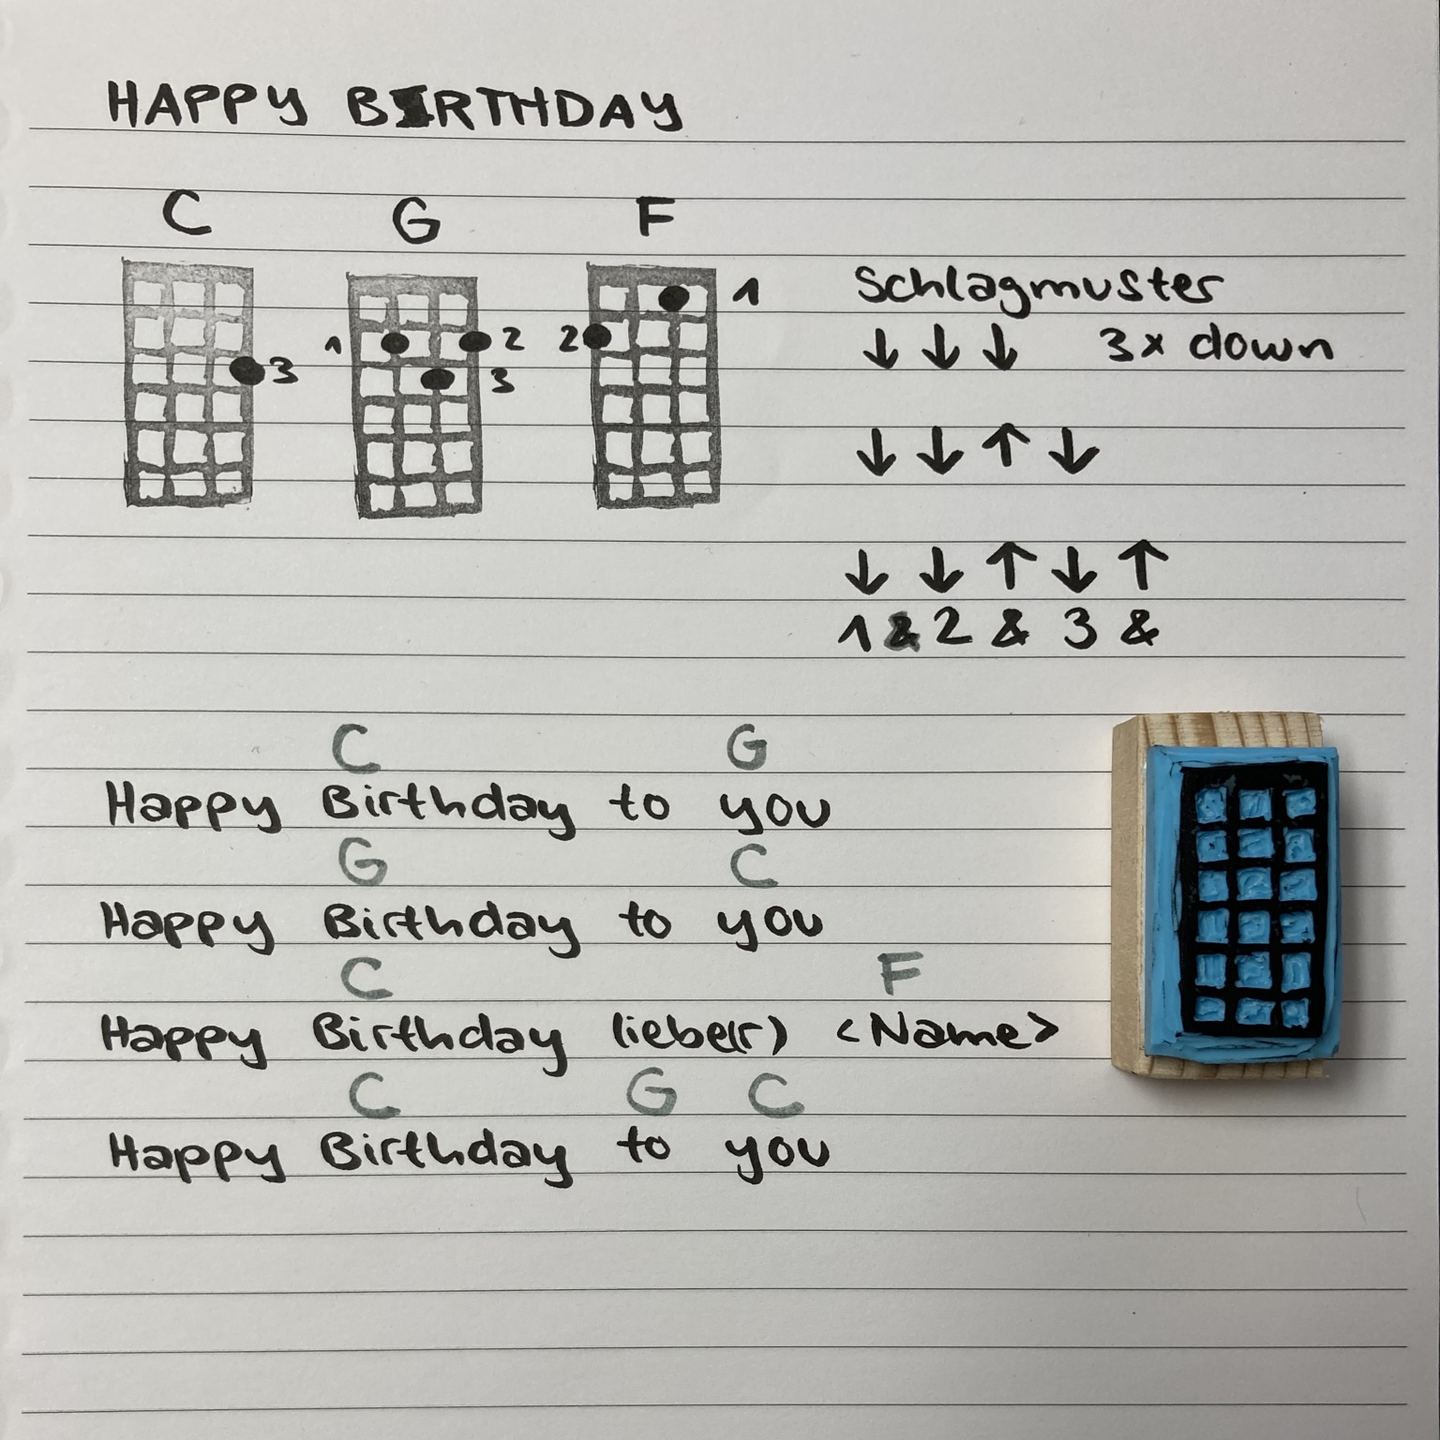 HAPPY BIRTHDAY
C G F
Schlagmuster
1
↓ ↓ ↓ 3x down
1 2 2
3 3
↓ ↓ ↑ ↓
↓ ↓ ↑ ↓ ↑
1 & 2 & 3 &
C G
Happy Birthday to you
G C
Happy Birthday to you
C F
Happy Birthday liebe(r) <Name>
C G C
Happy Birthday to you